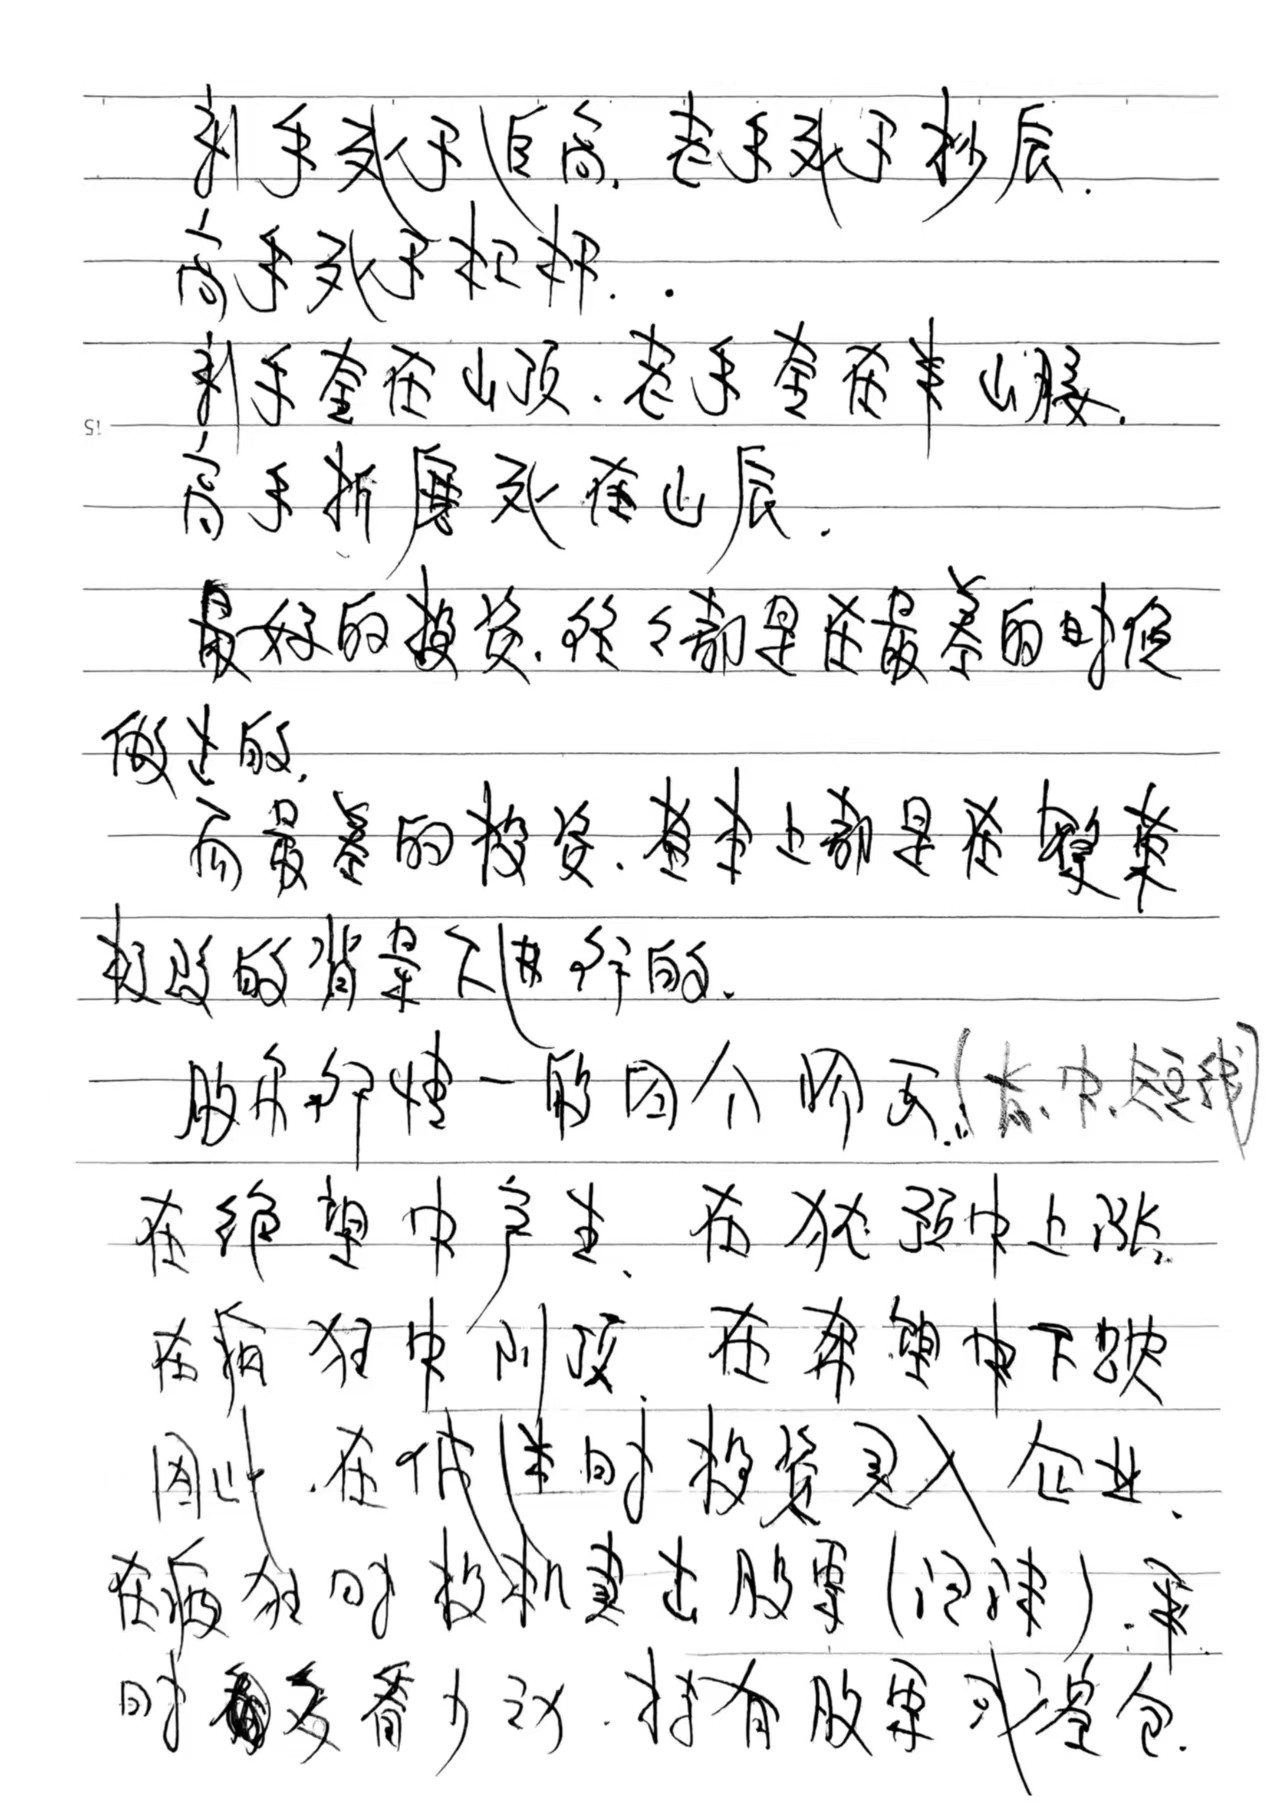 新手死于追高，老手死于抄底.
高手死于杠杆.
新手套在山顶.老手套在半山腰.
高手折磨死在山底.
最好的投资.往々都是在最差的时候
做出的.
而最差的投资.基本上都是在繁荣
报政的背景下进行的.
股票行情一般四个阶段.(长.中.短线)
在绝望中产生、在犹豫中上涨.
在疯狂中到顶.在希望中下跌
因此.在低迷时投资买入企业.
在疯狂时投机卖出股票(泡沫).平
时多看少动.持有股票或空仓.
15